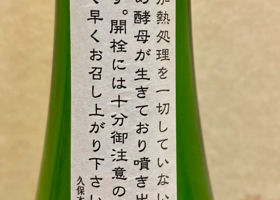 加熱処理を一切していない
め酵母が生きており噴き出
す。開栓には十分御注意の
く早くお召し上がり下さい
久保本